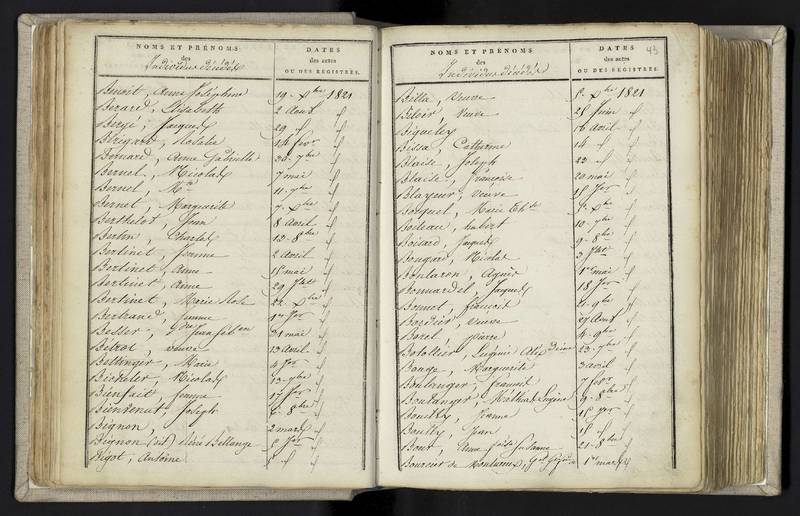 NOMS ET PRÉNOMS
des
Individus décédés
DATES
des actes
OU DES REGISTRES.
Benoit, Anne Joséphine 19 Xbre 1821
Berard, Elisabeth 2 Aout
Bergé, Jacques 29
Bérigard, Rosalie 14 fevr
Bernard, Anne Gabrielle 30 7bre
Bernet, Nicolas 7 mai
Bernet, 11 7bre
Bernet, Marguerite 7 Xbre
Berthelot, Jean 8 Avril
Bertin, Charles 13 8bre
Bertinet, Jeanne 2 Avril
Bertinet, Anne 15 mai
Bertinet, Anne 29
Bertinet, Marie Rose 22 Xbre
Bertrand, femme 1er Jer
Besser, 31 mai
Betrot, veuve 13 Avril
Bettinger, Marie 4 Jer
Bicheler, Nicolas 13 7bre
Bienfait, Jeanne 17 Jer
Bientenat, Joseph 8bre
Bignon, 2 mars
Bignon (dit) Bellange Jer
Bigot, Antoine
NOMS ET PRÉNOMS
des
Individus décédés
DATES
des actes
OU DES REGISTRES.
43
Billa, veuve Xbre 1821
veuve 25 Juin
Biqueley 16 Avril
Bissa, Catherine 14
Blaise, Joseph 23
Blaise, Françoise 20 mai
Blayeur, veuve 15 Jer
Bocquet, Marie Xbre
Boileau, hubert 10 7bre
Boisard, Jacques 9 8bre
Bongard, Nicolas 3
Bontaron, Agnès 1er mai
Bonnardel, Jacques 18 Jer
Bonnet, françois 9bre
Bordier, veuve 27 Aout
Borel, pierre 4 9bre
Botollier, 23 7bre
Bouge, Marguerite 3 avril
Boulanger, francois 7 fevr
Boulanger, 9 8bre
Bouilly, Jeanne 15 Jer
Bouilly, Jean 15
Bour, Anne 21 8bre
Bourcier de 1er mars